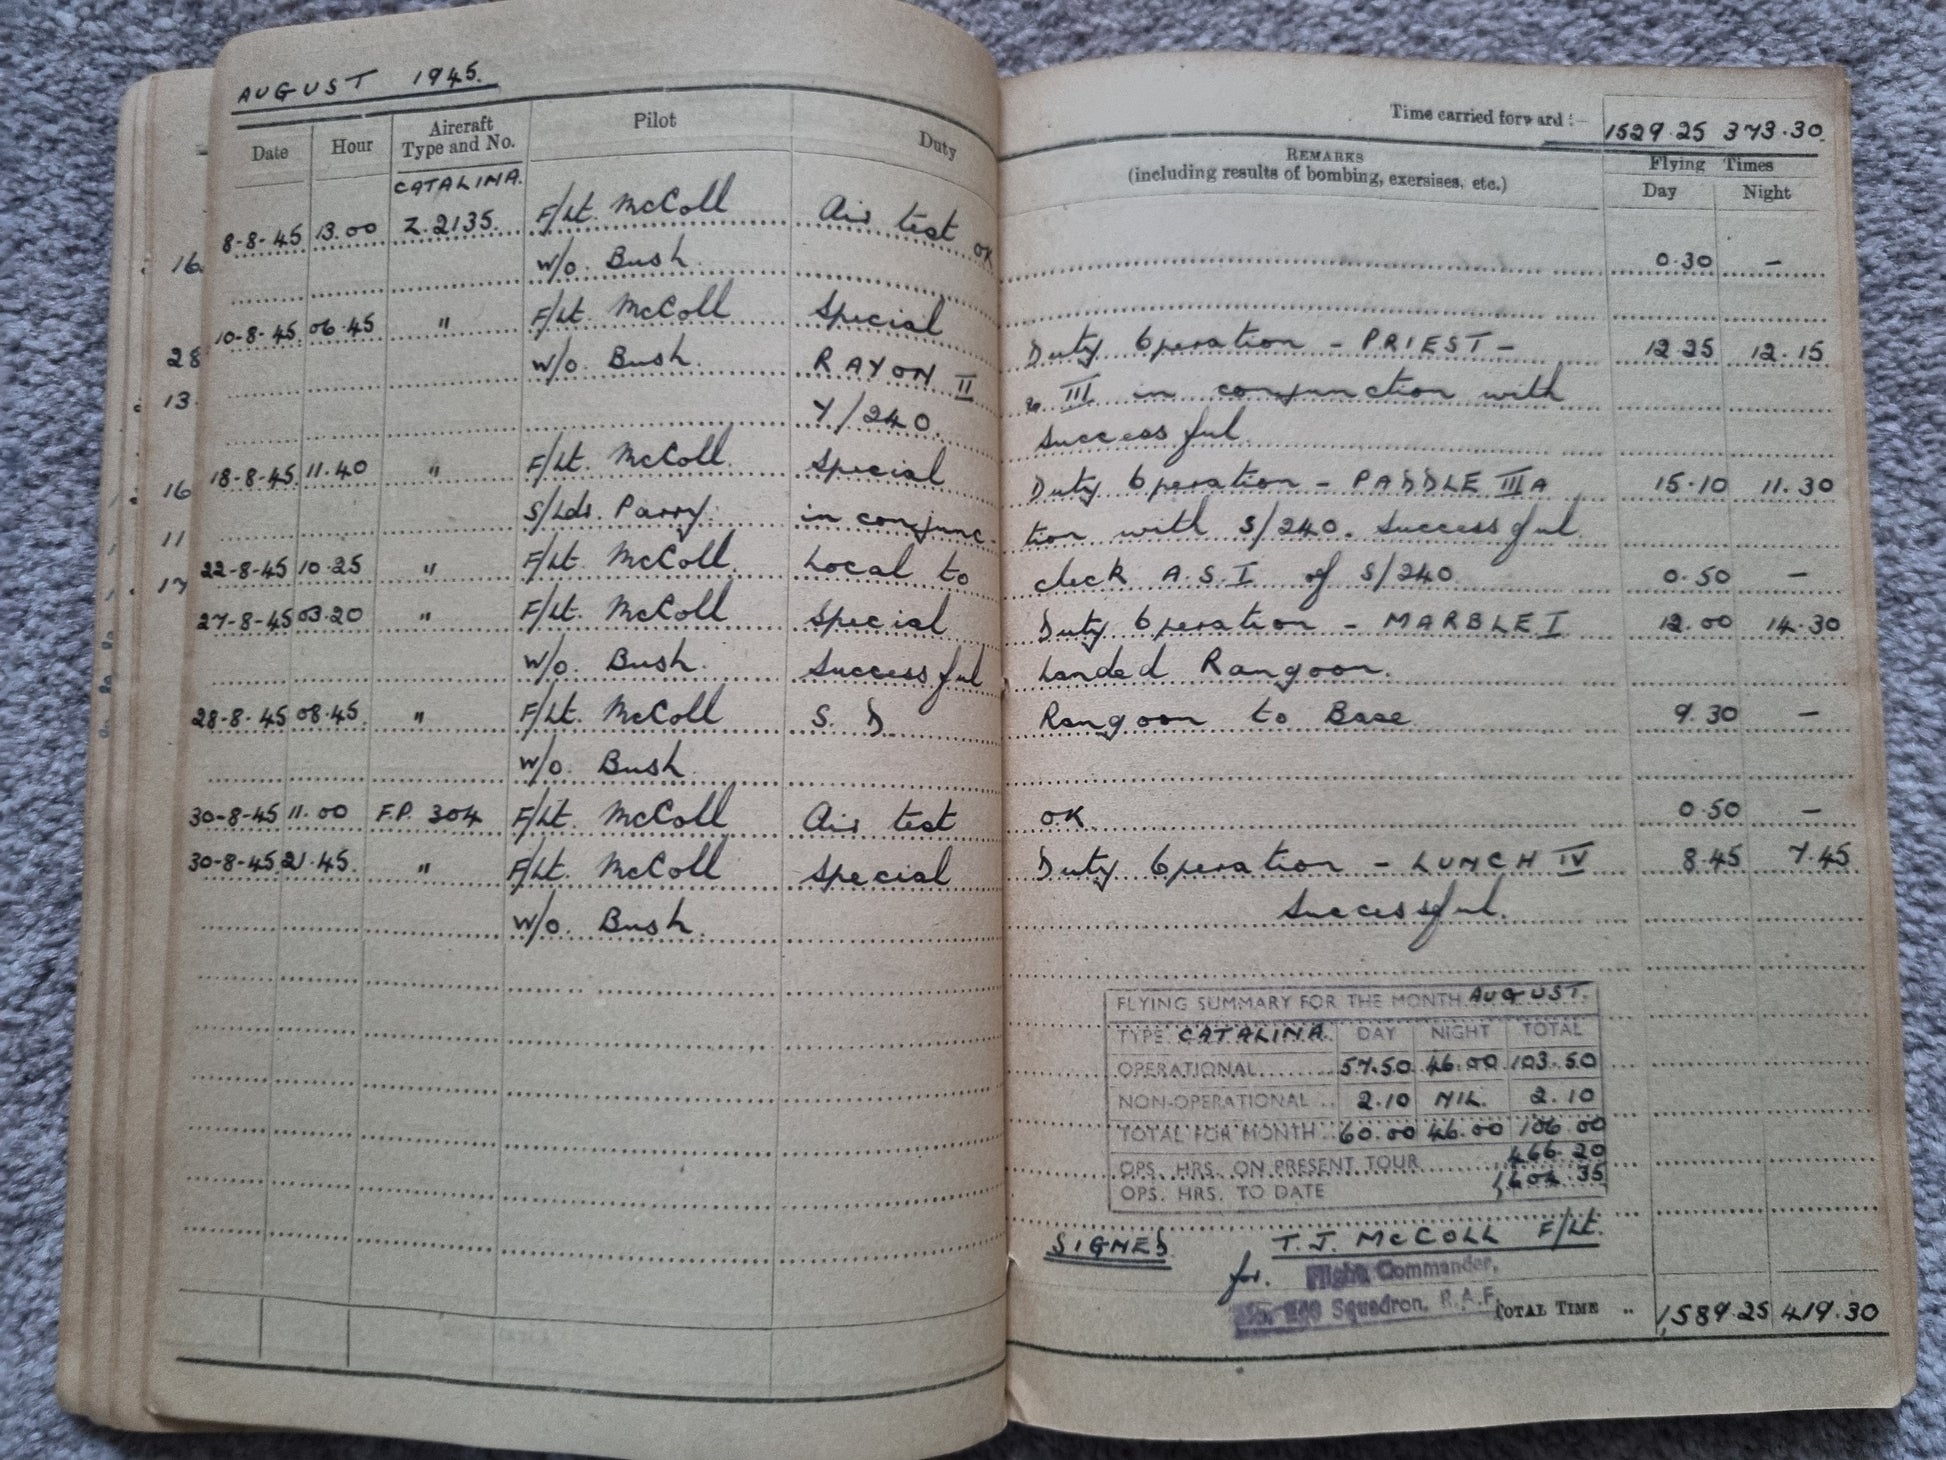 AUGUST 1945.
Time carried forward :- 1529.25 373.30
Date Hour Aircraft Type and No. Pilot Duty REMARKS (including results of bombing, exersises, etc.) Flying Times Day Night
CATALINA.
8-8-45 13.00 Z.2135. F/Lt. McColl Air test OK 0.30 —
W/O. Bush.
10-8-45 06.45 " F/Lt. McColl Special Duty Operation - PRIEST - 12.25 12.15
W/O. Bush. RAYON II III in conjunction with
Y/240. Successful.
18-8-45 11.40 " F/Lt. McColl. Special Duty Operation - PADDLE III A 15.10 11.30
S/Ldr. Parry. in conjunc- tion with S/240. Successful
22-8-45 10.25 " F/Lt. McColl. Local to check A.S.I of S/240 0.50 —
27-8-45 03.20 " F/Lt. McColl Special Duty Operation - MARBLE I 12.00 14.30
W/O. Bush. Successful Landed Rangoon.
28-8-45 08.45. " F/Lt. McColl S. D Rangoon to Base 9.30 —
W/O. Bush.
30-8-45 11.00 F.P. 304 F/Lt. McColl Air test OK. 0.50 —
30-8-45 21.45. " F/Lt. McColl Special Duty Operation - LUNCH IV 8.45 7.45
W/O. Bush. Successful.
FLYING SUMMARY FOR THE MONTH AUGUST.
TYPE CATALINA. DAY NIGHT TOTAL
OPERATIONAL 57.50 46.00 103.50
NON-OPERATIONAL 2.10 NIL. 2.10
TOTAL FOR MONTH 60.00 46.00 106.00
OPS. HRS. ON PRESENT TOUR 466.20
OPS. HRS. TO DATE 35
SIGNED T.J. McCOLL F/Lt.
for. Flight Commander,
No. 240 Squadron, R.A.F.
TOTAL TIME .. 1,589.25 419.30
16.
28
13.
16
11
17